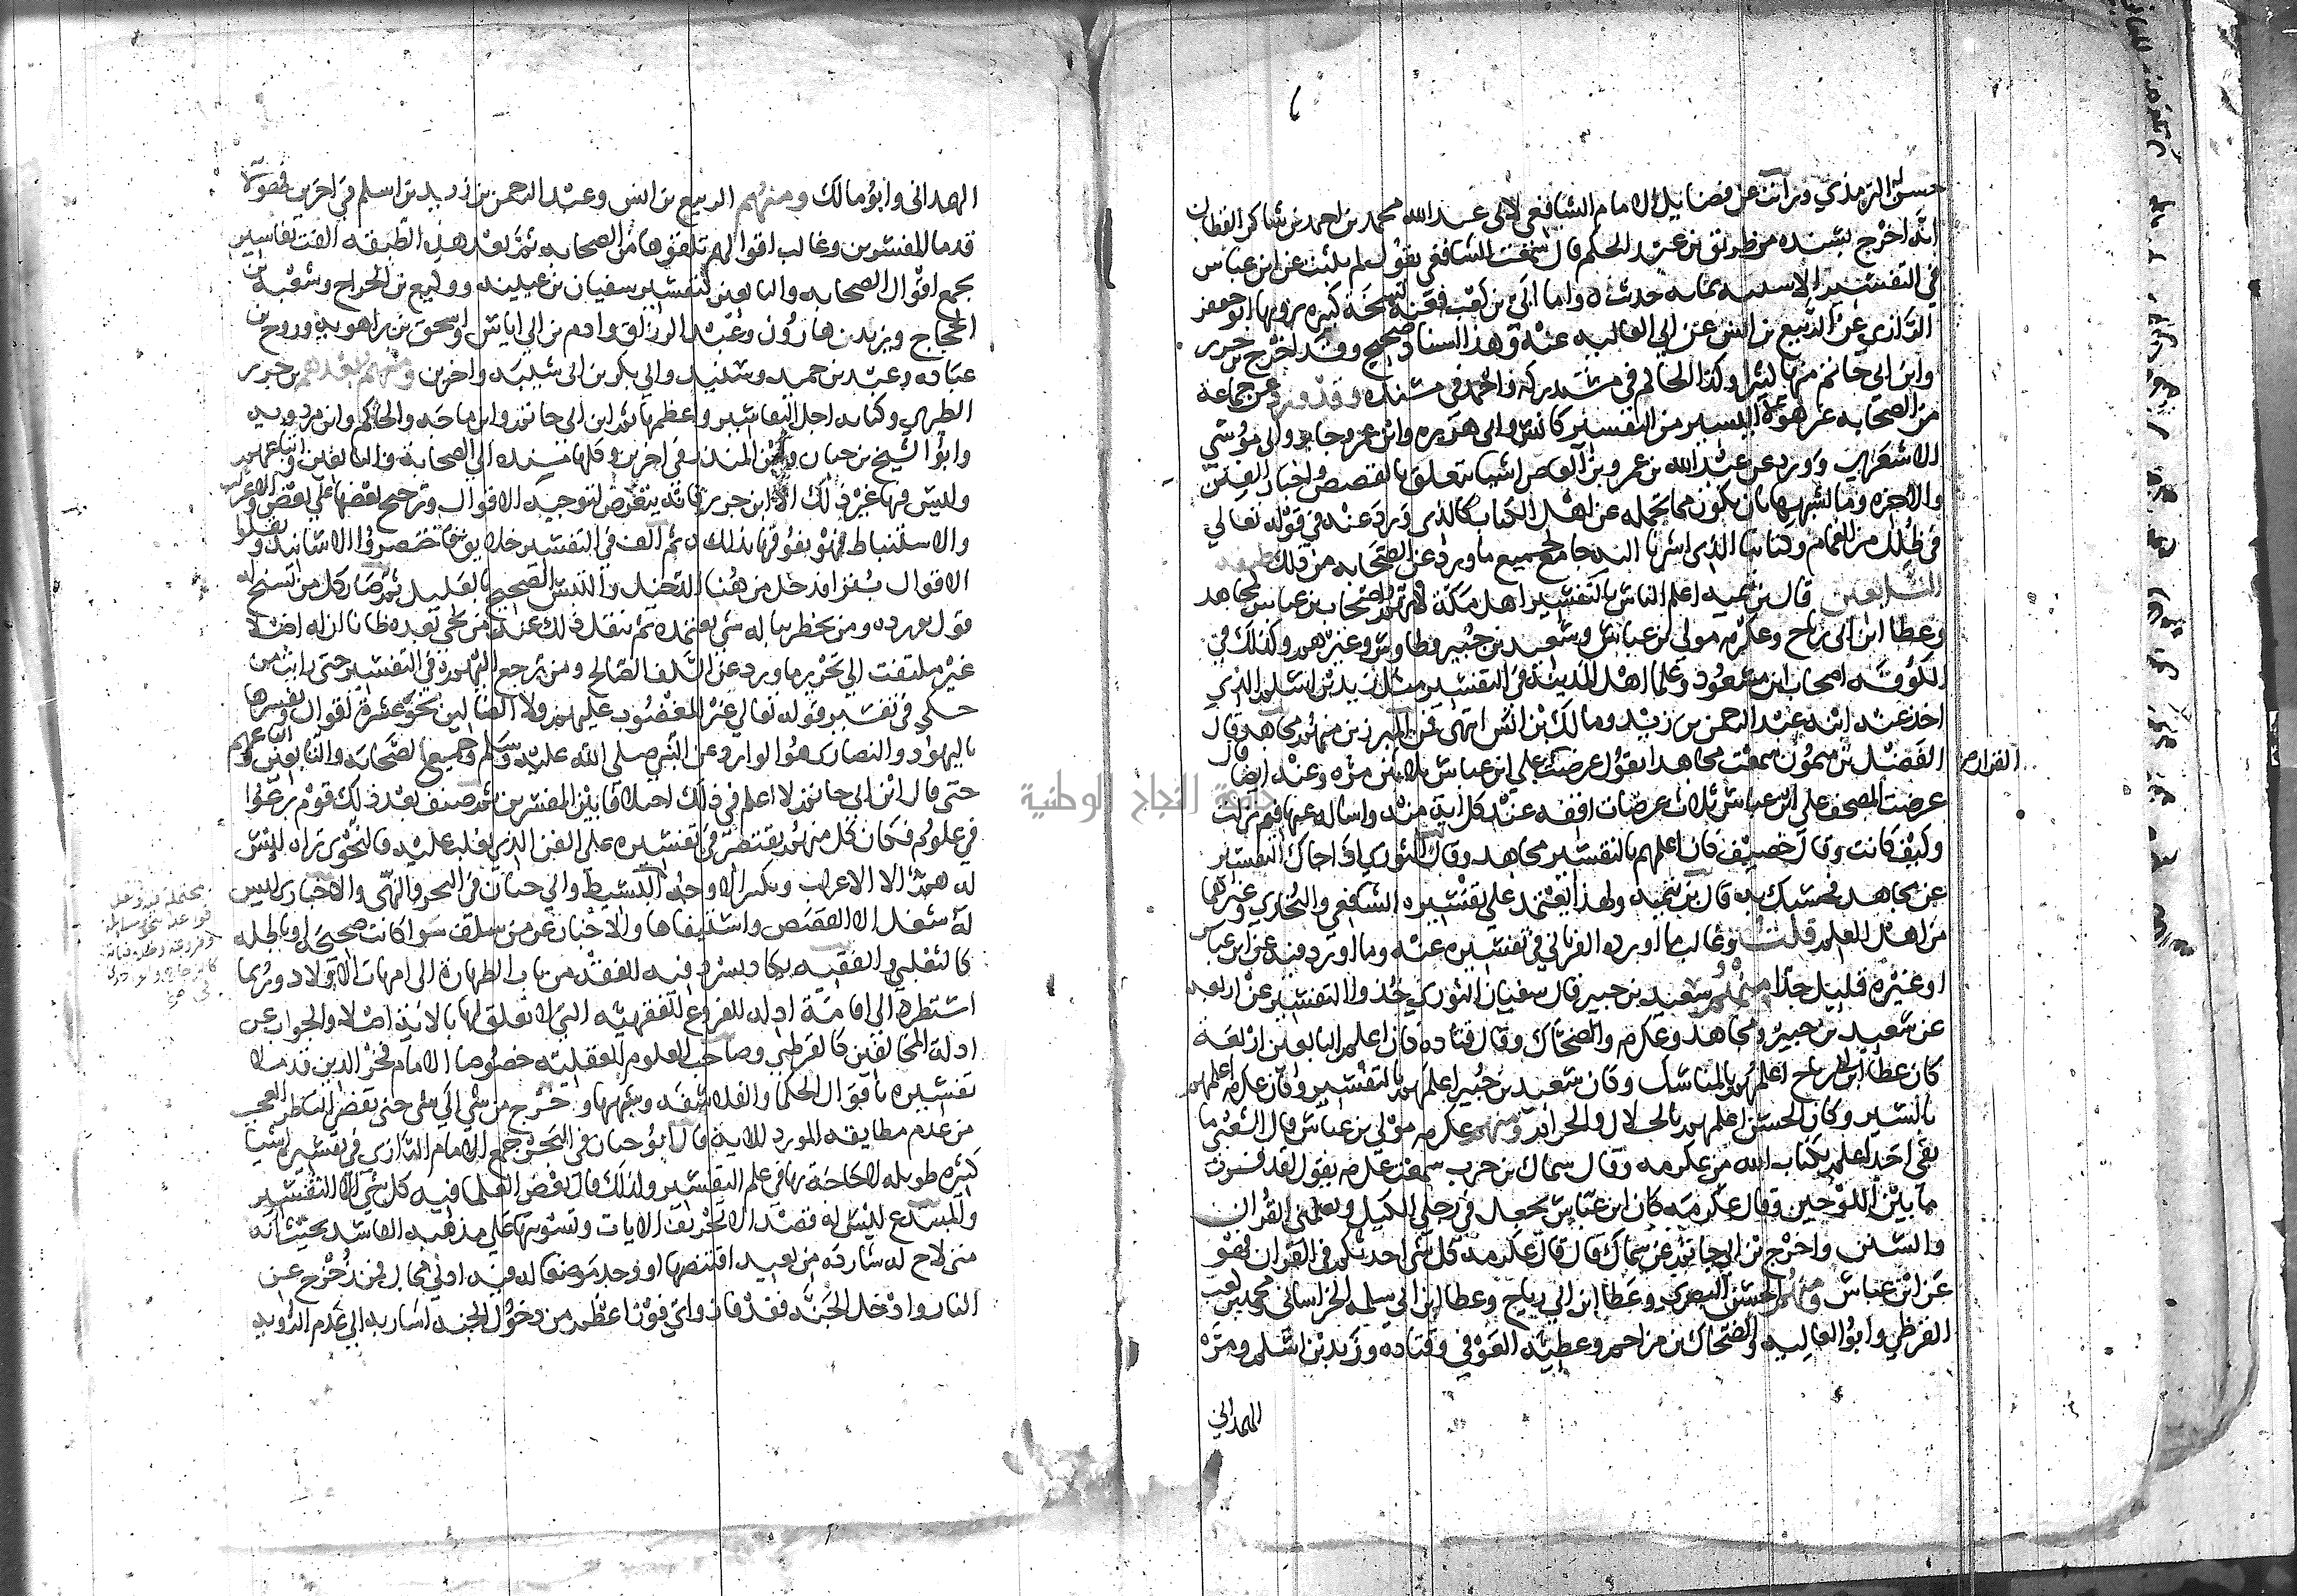 حسن له الترمذي ورأيت عن فضايل الامام الشافعي لابي عبد الله محمد بن احمد بن شاكر القطان
انه اخرج بسنده من طريق بن عبد الحكم قال سمعت الشافعي يقول لم يثبت عن ابن عباس
في التفسير الا شبيه بمايه حديث واما ابي بن كعب فعنه نسخة كبيره يرويها ابو جعفر
الرازي عن الربيع بن انس عن ابي العاليه عنه وهذا اسناد صحيح وقد اخرج بن جرير
وابن ابي حاتم منها كثيرا وكذا الحاكم في مستدركه واحمد في مسنده وقد ورد عن جماعة
من الصحابه غير هولا اليسير من التفسير كانس وابي هريره وابن عمر وجابر وابي موسي
الاشعري وورد عن عبد الله بن عمرو بن العاص اشيا تتعلق بالقصص واخبار الفتن
والاخره وما اشبهها بان يكون مما تحمله عن اهل الكتاب كالذي ورد عنه في قوله تعالي
في ظلل من الغمام وكتابنا الذي اشرنا اليه جامع لجميع ما ورد عن الصحابه من ذلك طبقة
التابعين قال بن تيميه اعلم الناس بالتفسير اهل مكة لانهم اصحاب بن عباس كمجاهد
وعطا ابن ابي رباح وعكرمه مولي بن عباس وسعيد بن جبير وطاوس وغيرهم وكذلك في
الكوفه اصحاب ابن مسعود وعلما اهل المدينة في التفسير مثل زيد بن اسلم الذي
اخذ عنه ابنه عبد الرحمن بن زيد ومالك بن انس انتهي فمن المبرزين منهم مجاهد قال
الفضل بن ميمون سمعت مجاهدا يقول عرضت علي ابن عباس ثلاثين مره وعنه ايضا قال
القران
عرضت المصحف علي ابن عباس ثلاث عرضات اقفه عند كل اية منه واساله عنها فيم نزلت
وكيف كانت وقال خصيف كان اعلمهم بالتفسير مجاهد وقال الثوري اذا جاك التفسير
عن مجاهد فحسبك به قال بن تيميه ولهذا يعتمد علي تفسيره الشافعي والبخاري وغيرهما
من اهل العلم قلت وغالب ما اورده الفريابي في تفسيره عنه وما اورد فيه عن ابن عباس
او غيره قليل جدا ومنهم سعيد بن جبير قال سفيان الثوري خذوا التفسير عن اربعه
عن سعيد بن جبير ومجاهد وعكرمه والضحاك وقال قتاده كان اعلم التابعين اربعة
كان عطا ابن ابي رباح اعلمهم بالمناسك وكان سعيد بن جبير اعلمهم بالتفسير وكان عكرمه اعلمهم
بالسير وكان الحسن اعلمهم بالحلال والحرام ومنهم عكرمه مولي بن عباس قال الشعبي ما
بقي احد اعلم بكتاب الله من عكرمه وقال سماك بن حرب سمعت عكرمه يقول لقد فسرت
ما بين اللوحين وقال عكرمه كان ابن عباس يجعل في رجلي الكبل ويعلمني القران
والسنن واخرج بن ابي حاتم عن سماك قال قال عكرمه كل شي احدثكم في القران فهو
عن ابن عباس ومنهم الحسن البصري وعطا ابن ابي رباح وعطا ابن ابي سلمه الخراساني ومحمد بن كعب
القرظي وابو العاليه والضحاك بن مزاحم وعطيه العوفي وقتاده وزيد بن اسلم ومره
الهمداني
الهمداني وابو مالك ومنهم الربيع بن انس وعبد الرحمن بن زيد بن اسلم في اخرين فهولا
قدما المفسرين وغالب اقوالهم تلقوها من الصحابه ثم بعد هذه الطبقه الفت تفاسير
تجمع اقوال الصحابه والتابعين كتفسير سفيان بن عيينه ووكيع بن الجراح وشعبة بن
الحجاج ويزيد بن هارون وعبد الرزاق وادم بن ابي اياس واسحق بن راهويه وروح بن
عباده وعبد بن حميد وسنيد وابي بكر بن ابي شيبه واخرين ومنهم بعدهم بن جرير
الطبري وكتابه اجل التفاسير واعظمها ثم ابن ابي حاتم وابن ماجه والحاكم وابن مردويه
وابو الشيخ بن حبان وابن المنذر في اخرين وكلها مسنده الي الصحابة والتابعين واتباعهم
وليس فيها غير ذلك الا ابن جرير فانه يتعرض لتوجيه الاقوال وترجيح بعضها علي بعض والاعراب
والاستنباط فهو يفوقها بذلك ثم الف في التفسير خلايق فاختصروا الاسانيد ونقلوا
الاقوال بترا فدخل من هنا الدخيل والتبس الصحيح بالعليل ثم صار كل من تسنح له
قول يورده ومن يخطر بباله شي يعتمده ثم ينقل ذلك عنه من يجي بعده ظانا ان له اصلا
غير ملتفت الي تحرير ما ورد عن السلف الصالح ومن يرجع اليهم في التفسير حتى رايت من
حكي في تفسير قوله تعالي غير المغضوب عليهم ولا الضالين نحو عشرة اقوال وتفسيرها
باليهود والنصاري هو الوارد عن النبي صلي الله عليه وسلم وجميع الصحابه والتابعين واتباعهم
حتى قال ابن ابي حاتم لا اعلم في ذلك اختلافا بين المفسرين ثم صنف بعد ذلك قوم برعوا
في علوم فكان كل منهم يقتصر في تفسيره علي الفن الذي يغلب عليه فالنحوي تراه ليس
له هم الا الاعراب وتكثير الاوجه البسيط وابي حيان في البحر والنهر والاخباري ليس
له شغل الا القصص واستيفاها والاخبار عن من سلف سوا كانت صحيحه او باطله
كالثعلبي والفقيه يكاد يسرد فيه الفقه من باب الطهارة الي امهات الاولاد وربما
استطرد الي اقامة ادله الفروع الفقهيه التي لا تعلق لها بالاية اصلا والجواب عن
ادلة المخالفين كالقرطبي وصاحب العلوم العقليه خصوصا الامام فخر الدين قد ملا
تفسيره باقوال الحكما والفلاسفه وشبهها وخرج من شي الي شي حتى يقضي الناظر العجب
من عدم مطابقه المورد للاية قال ابو حيان في البحر جمع الامام الرازي في تفسيره اشيا
كثيره طويله لا حاجة بها في علم التفسير ولذلك قال بعض العلما فيه كل شي الا التفسير
والمبتدع ليس له قصد الا تحريف الايات وتسويتها علي مذهبه الفاسد بحيث انه
متى لاح له شارده من بعيد اقتنصها او وجد موضعا له فيه ادني مجال فمن زحزح عن
النار وادخل الجنه فقد فاز واي فوز اعظم من دخول الجنه اشار به الي عدم الرويه
جامعة النجاح الوطنية